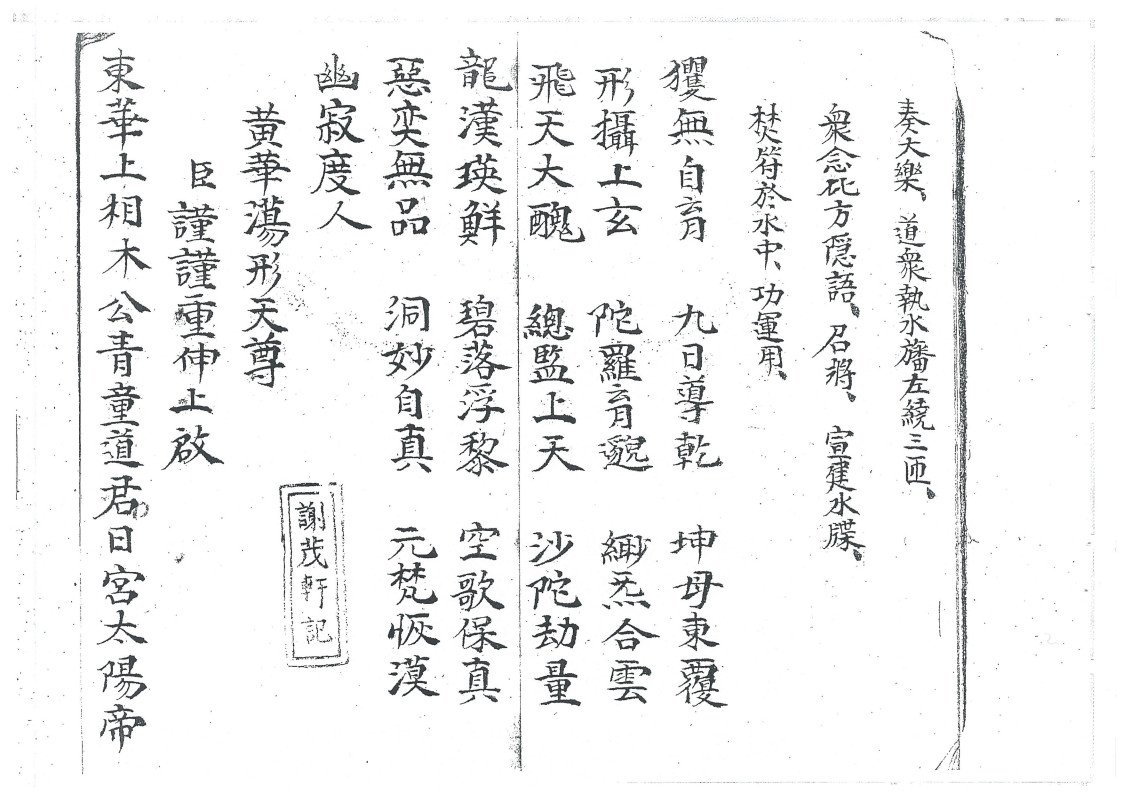 奏大樂、道衆執水旛左繞三匝、
衆念北方隱語、召將、宣建水牒、
焚符於水中、功運用、
玃無自育 九日導乾 坤母東覆
形攝上玄 陀羅育邈 緲炁合雲
飛天大醜 總監上天 沙陀劫量
龍漢瑛鮮 碧落浮黎 空歌保真
惡奕無品 洞妙自真 元梵恢漠
幽寂度人
黃華蕩形天尊
臣謹謹重伸上啟
東華上相木公青童道君日宮太陽帝
謝茂軒記